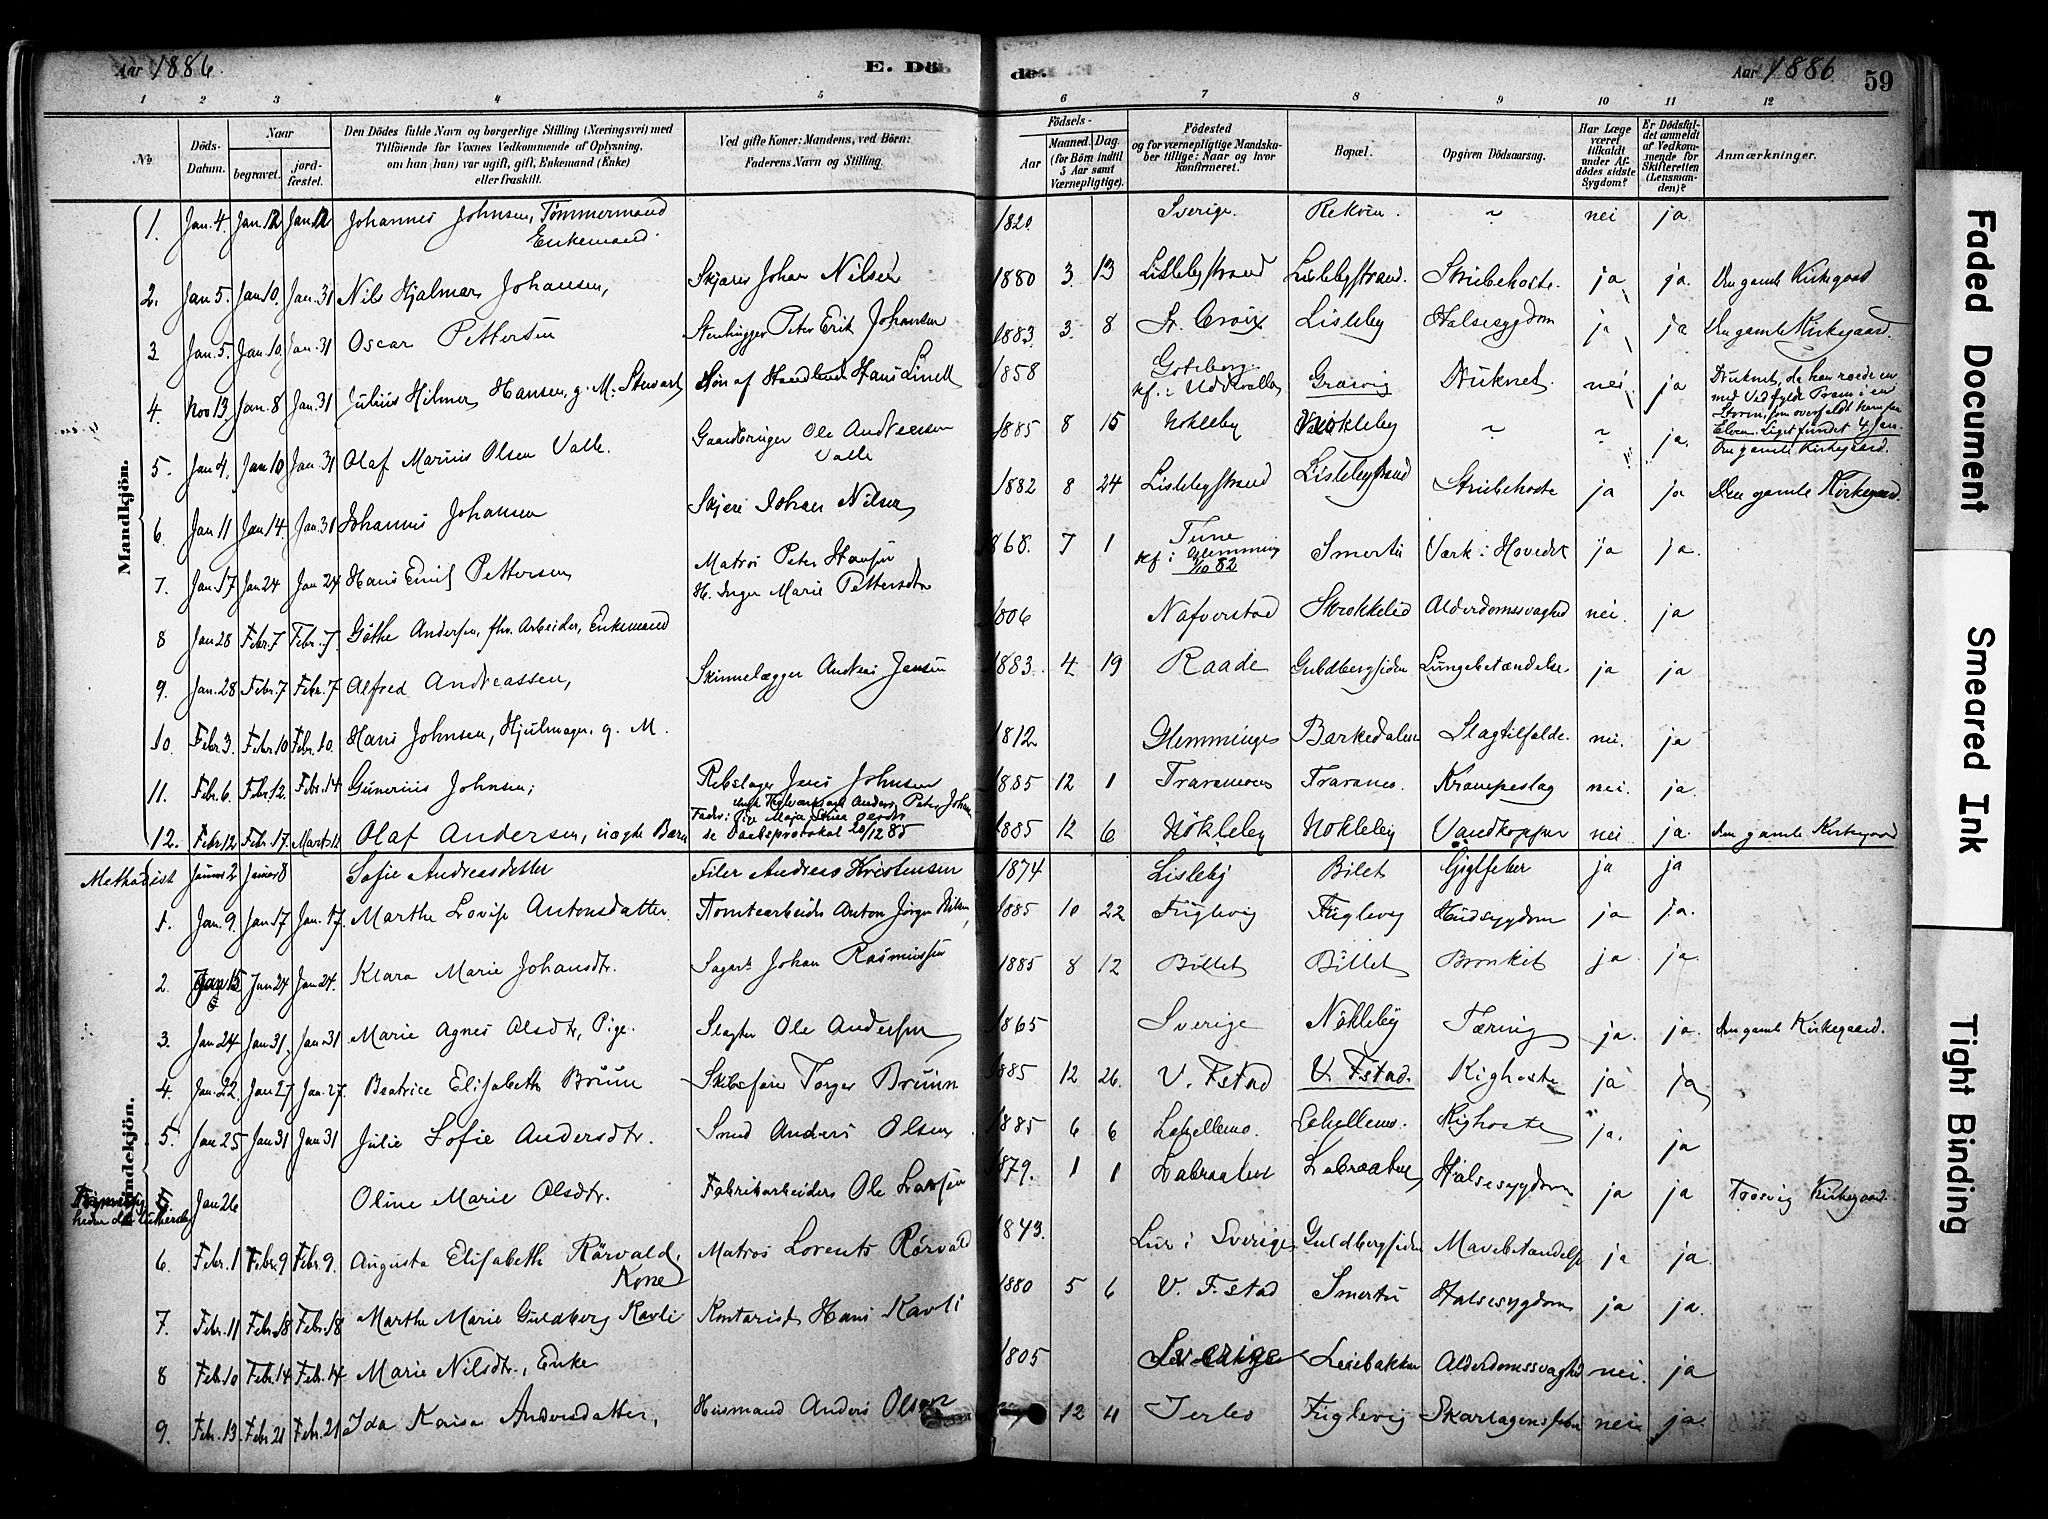 Aar 1886. E. Dö de. Aar 1886 59
1 2 3 4 5 6 7 8 9 10 11 12
No
Döds-Datum.
Naar
begravet.
jordfæstet.
Den Dödes fulde Navn og borgerlige Stilling (Næringsvei) med
Tilföiende for Voxnes Vedkommende af Oplysning,
om han (hun) var ugift, gift, Enkemand (Enke)
eller fraskilt.
Ved gifte Koner: Mandens, ved Börn:
Faderens Navn og Stilling.
Födsels-
Aar
Maaned. Dag.
(for Börn indtil
5 Aar samt
Værnepligtige).
Födested
og for værnepligtige Mandskaber tillige: Naar og hvor
konfirmeret.
Bopæl.
Opgiven Dödsaarsag.
Har Læge
været
tilkaldt
under Afdödes sidste
Sygdom?
Er Dödsfaldet anmeldt
af Vedkommende for
Skifteretten
(Lensmanden)?
Anmærkninger.
Mandkjön.
1. Jan. 4. Jan. 12 Jan. 12 Johannes Johnsen, Tömmermand 1820 Sverige. ~ nei ja.
Enkemand.
2. Jan 5. Jan 10. Jan. 31 Nils Hjalmar Johansen, Skjærer Johan Nilsen 1880 3. 13 Lislebystrand Lislebystrand. Strubehoste. ja ja. Den gamle Kirkegaard
3 Jan 5. Jan 10. Jan. 31 Oscar Pettersen Stenhugger Peter Erik Johansen 1883. 3. 8 St. Croix Lisleby Halssygdom ja ja Den gamle Kirkegaard.
4. Nov 13 Jan. 8 Jan. 31 Julius Hilmer Hansen, g. M. Stuvert Sön af Handlende Hans Linell 1858 Goteborg Græsvig Druknet. nei ja Druknet, da han roede en
kf. i Uddevalla med Ved fyldt Pram i en
Storm, som overfaldt ham paa
Elven. Liget fundet 4 Jan.
5. Jan 4. Jan 10 Jan 31 Olaf Marius Olsen Valle. Gaardbruger Ole Andreassen 1885 8 15 Nokleby Nokleby ~ ~ ja. Den gamle Kirkegaard.
Valle
6. Jan 11 Jan 14. Jan. 31 Johannes Johansen Skjærer Johan Nilsen 1882 8 24 Lislebystrand Lislebystrand Strubehoste ja ja Den gamle Kirkegaard.
7. Jan 17 Jan 24 Jan 24 Hans Emil Pettersen Matros Peter Hansen 1868. 7 1 Tune Smertu Værk i Hovedet ja ja.
H. Inger Marie Pettersdtr kf. i Glemming 1/10 82
8 Jan 28 Febr. 7 Febr. 7. Göthe Andersen, fhv. Arbeider, Enkemand 1806 Nafverstad Skrokkelid Alderdomssvaghed nei. ja
9. Jan. 28 Febr. 7 Febr. 7 Alfred Andreassen, Skinnelægger Andreas Jensen 1883. 4 19 Raade Guldbergsiden Lungebetændelse. ja ja
10. Febr. 3. Febr. 10 Febr. 10. Hans Johnsen, Hjulmager. g. M. 1812 Glemminge Barkedalen Slagtilfælde. nei. ja
11. Febr. 6. Febr 12. Febr. 14 Gunerius Johnsen, Rebslager Jens Johnsen 1885 12 1 Traranes Traranes. Krampeslag nei. ja.
12. Febr 12 Febr. 17. Marts 12 Olaf Andersen, uægte Barn 1885 12 6 Nökleby Nokleby Vandkopper nei ja. Den gamle Kirkegaard
se Daabsprotokol 20/12 85
Methodist Januar 2 Januar 8 Sofie Andreasdatter Filer Andreas Kristensen 1874 Lisleby Bilet Gigtfeber ja ja
Kvindekjön.
1. Jan. 9. Jan 17 Jan. 17. Marthe Lovise Antonsdatter. Tomtearbeider Anton Jörgen Nilsen, 1885 10 22 Fuglevig Fuglevig Hudsygdom ja ja.
2. Jan 15 Jan 24 Jan 24. Klara Marie Johansdtr. Sagarb. Johan Rasmussen 1885 8 12 Billet Billet Bronkit ja. ja.
3. Jan 24 Jan 31, Jan 31 Marie Agnes Olsdtr, Pige. Slagter Ole Andersen 1865 Sverige Nökleby Tæring ja. ja. Den gamle Kirkegaard.
4. Jan. 22. Jan 27 Jan. 27. Beatrice Elisabeth Bruun Skibsfører Torger Bruun 1885 12 26. V. Fstad V. Fstad. Kighoste ja ja
5. Jan 25 Jan 31 Jan 31 Julie Sofie Andersdtr. Smed Anders Olsen 1885 6 6 Lahellemo. Lahellemo. Kighoste ja. ja
5. Jan 26 Oline Marie Olsdtr. Fabrikarbeider Ole Larsen 1879. 1 1 Labraaten Labraaten Halssygdom ja ja Trosvig Kirkegaard.
6. Febr. 1 Febr. 9 Febr. 9. Augusta Elisabeth Rörvald, Matros Lorents Rörvald 1843. Lur i Sverige Guldbergsiden Mavebetændelse ja ja.
Kone
7. Febr. 11 Febr. 18 Febr. 18 Marthe Marie Guldberg Kavli Kontorist Hans Kavli 1880 5 6 V. Fstad Smertu Halssygdom ja ja.
8 Febr. 10 Febr. 14 Febr. 14 Marie Nilsdtr., Enke 1805 Sverige Leiebakken Alderdomssvaghed nei. ja
9. Febr. 13. Febr 21 Febr. 21 Ida Kaisa Andersdatter, Husmand Anders Olsen 12 4 Fuglevig Skarlagensfeber nei ja.
Faded Document
Smeared Ink
Tight Binding